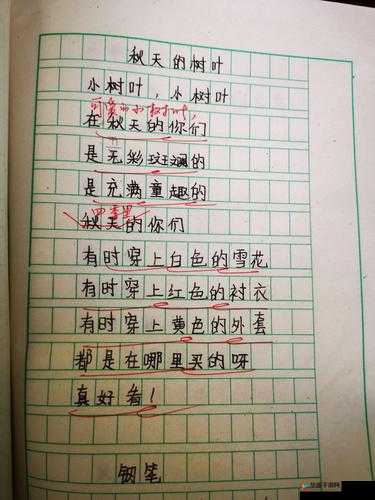 秋天的树叶
小树叶，小树叶
可爱的小树叶，
在秋天的你们
是无彩斑斓的
是充满童趣的
秋天的你们
有时穿上白色的雪花
有时穿上红色的衬衣
有时穿上黄色的外套
都是在哪里买的呀
真好看！
钢笔